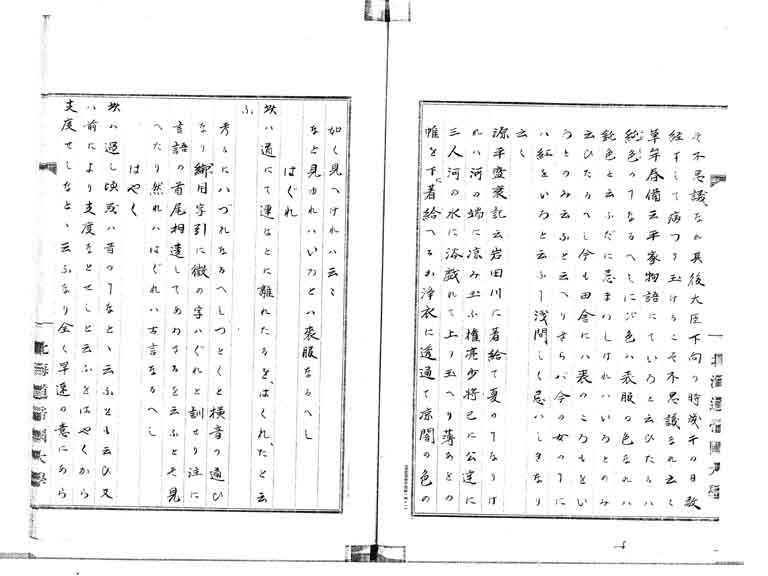 そ不思議なれ其後大臣下向の時成千の日数
経すして病つり玉けるこそ不思議なれ云〻
草年春備云平家物語にていろと云ひたるハ
純色のてなるへしにぶ色ハ喪服の色なれハ
鈍色と云ふだに忌まわしけれハいろとのみ
云ひたるへし今も田舎にハ喪のころもをい
ろとのみ云ふと云へりさらバ今の女のてに
ハ紅をいろと云ふて浅間しく忌ハしきなり
云〻
源平盛衰記云岩田川に着給て夏のてなりけ
れハ河の端に凉み玉ふ権亮少将已に公達に
三人河の水に浴戯れて上り玉へり薄あとの
帷を下に着給へるか浄衣に透通て凉闇の色の
如く見へけれハ云〻
なと見ゆれハいろとハ喪服なるへし
はぐれ
坎ハ道にて連なとに離れたるを、はくれ、たと云
ふ
考るにハづれなるへしつとくと横音の通ひ
なり節用字引に微の字ハぐれと訓せり注に
言語の首尾相違してあわさるを云ふとそ見
へたり然れハはぐれハ古言なるへし
はやく
坎ハ過し頃或ハ昔のてなと、云ふとも云ひ又
ハ前により支度なとせしと云ふをはやくから
支度せしなと、云ふなり全く早速の意にあら
北海道帝國大學
北海道帝國大學